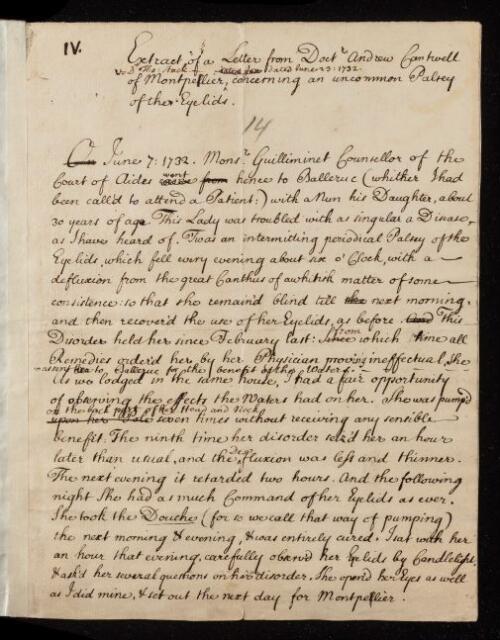 IV.
Extract of a Letter from Doctr Andrew Cantwell
dated June 23: 1732.
of Montpellier, concerning an uncommon Palsey
of the Eyelids.
14
On June 7: 1732. Monsr Guilliminet Counsellor of the
Court of Aides went from hence to Balleruc (whither I had
been call'd to attend a Patient:) with a Nun his Daughter, about
30 years of age This Lady was troubled with as singular a Disease
as I have heard of. 'Twas an intermitting periodical Palsey of the
Eyelids, which fell every evening about six o' Clock, with a
defluxion from the great Canthus of a whitish matter of some
consistence: so that she remain'd blind till the next morning.
and then recover'd the use of her Eyelids, as before. And This
Disorder held her since February last: since from which time all
Remedies order'd her, by her Physician proving ineffectual, She
went to Balleruc for the benefit of the Waters.
As we lodged in the same house, I had a fair opportunity
of observing the effects the Waters had on her. She was pump'd
on the back part of her Head and Neck
upon her seven times without receiving any sensible
benefit. The ninth time her disorder seiz'd her an hour
later than usual, and the defluxion was less and thinner.
The next evening it retarded two hours. And the following
night She had as much Command of her Eyelids as ever.
She took the Douche (for so we call that way of pumping)
the next morning & evening, & was entirely cured. I sat with her
an hour that evening, carefully observ'd her Eyelids by Candlelight,
& ask'd her several questions on her disorder. She open'd her Eyes as well
as I did mine, & set out the next day for Montpellier.